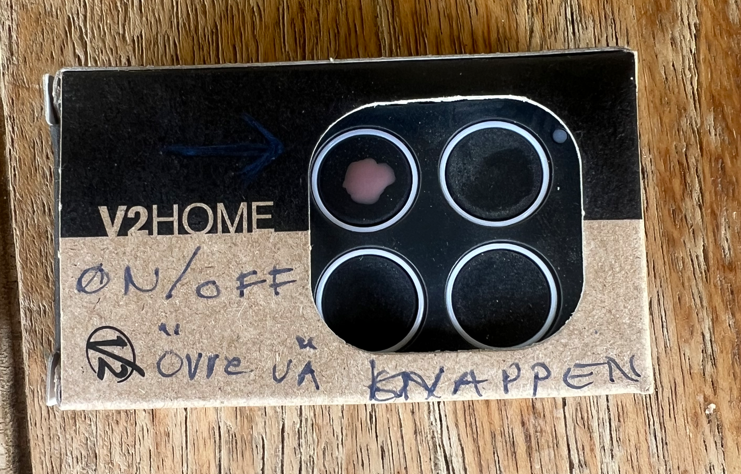 V2HOME
ON/OFF
V2 "Övre vä" KNAPPEN